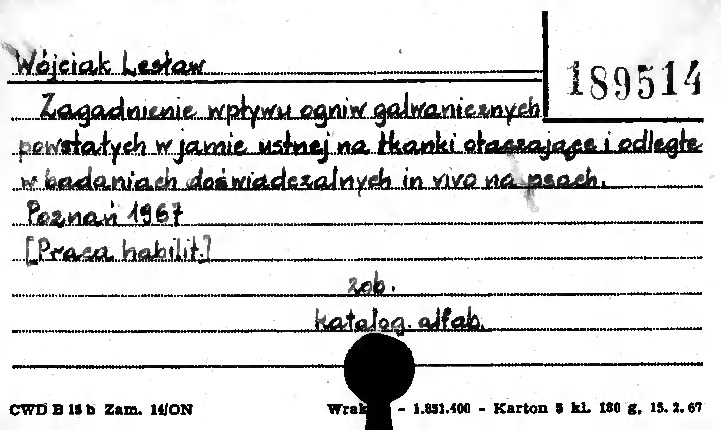 Wójciak Lesław
189514
Zagadnienie wpływu ogniw galwanicznych
powstałych w jamie ustnej na tkanki otaczające i odległe
w badaniach doświadczalnych in vivo na psach.
Poznań 1967
[Praca habilit.]
zob.
katalog. alfab.
CWD B 18 b Zam. 14/ON
- 1.831.400 - Karton 5 kl. 180 g, 15. 2. 67